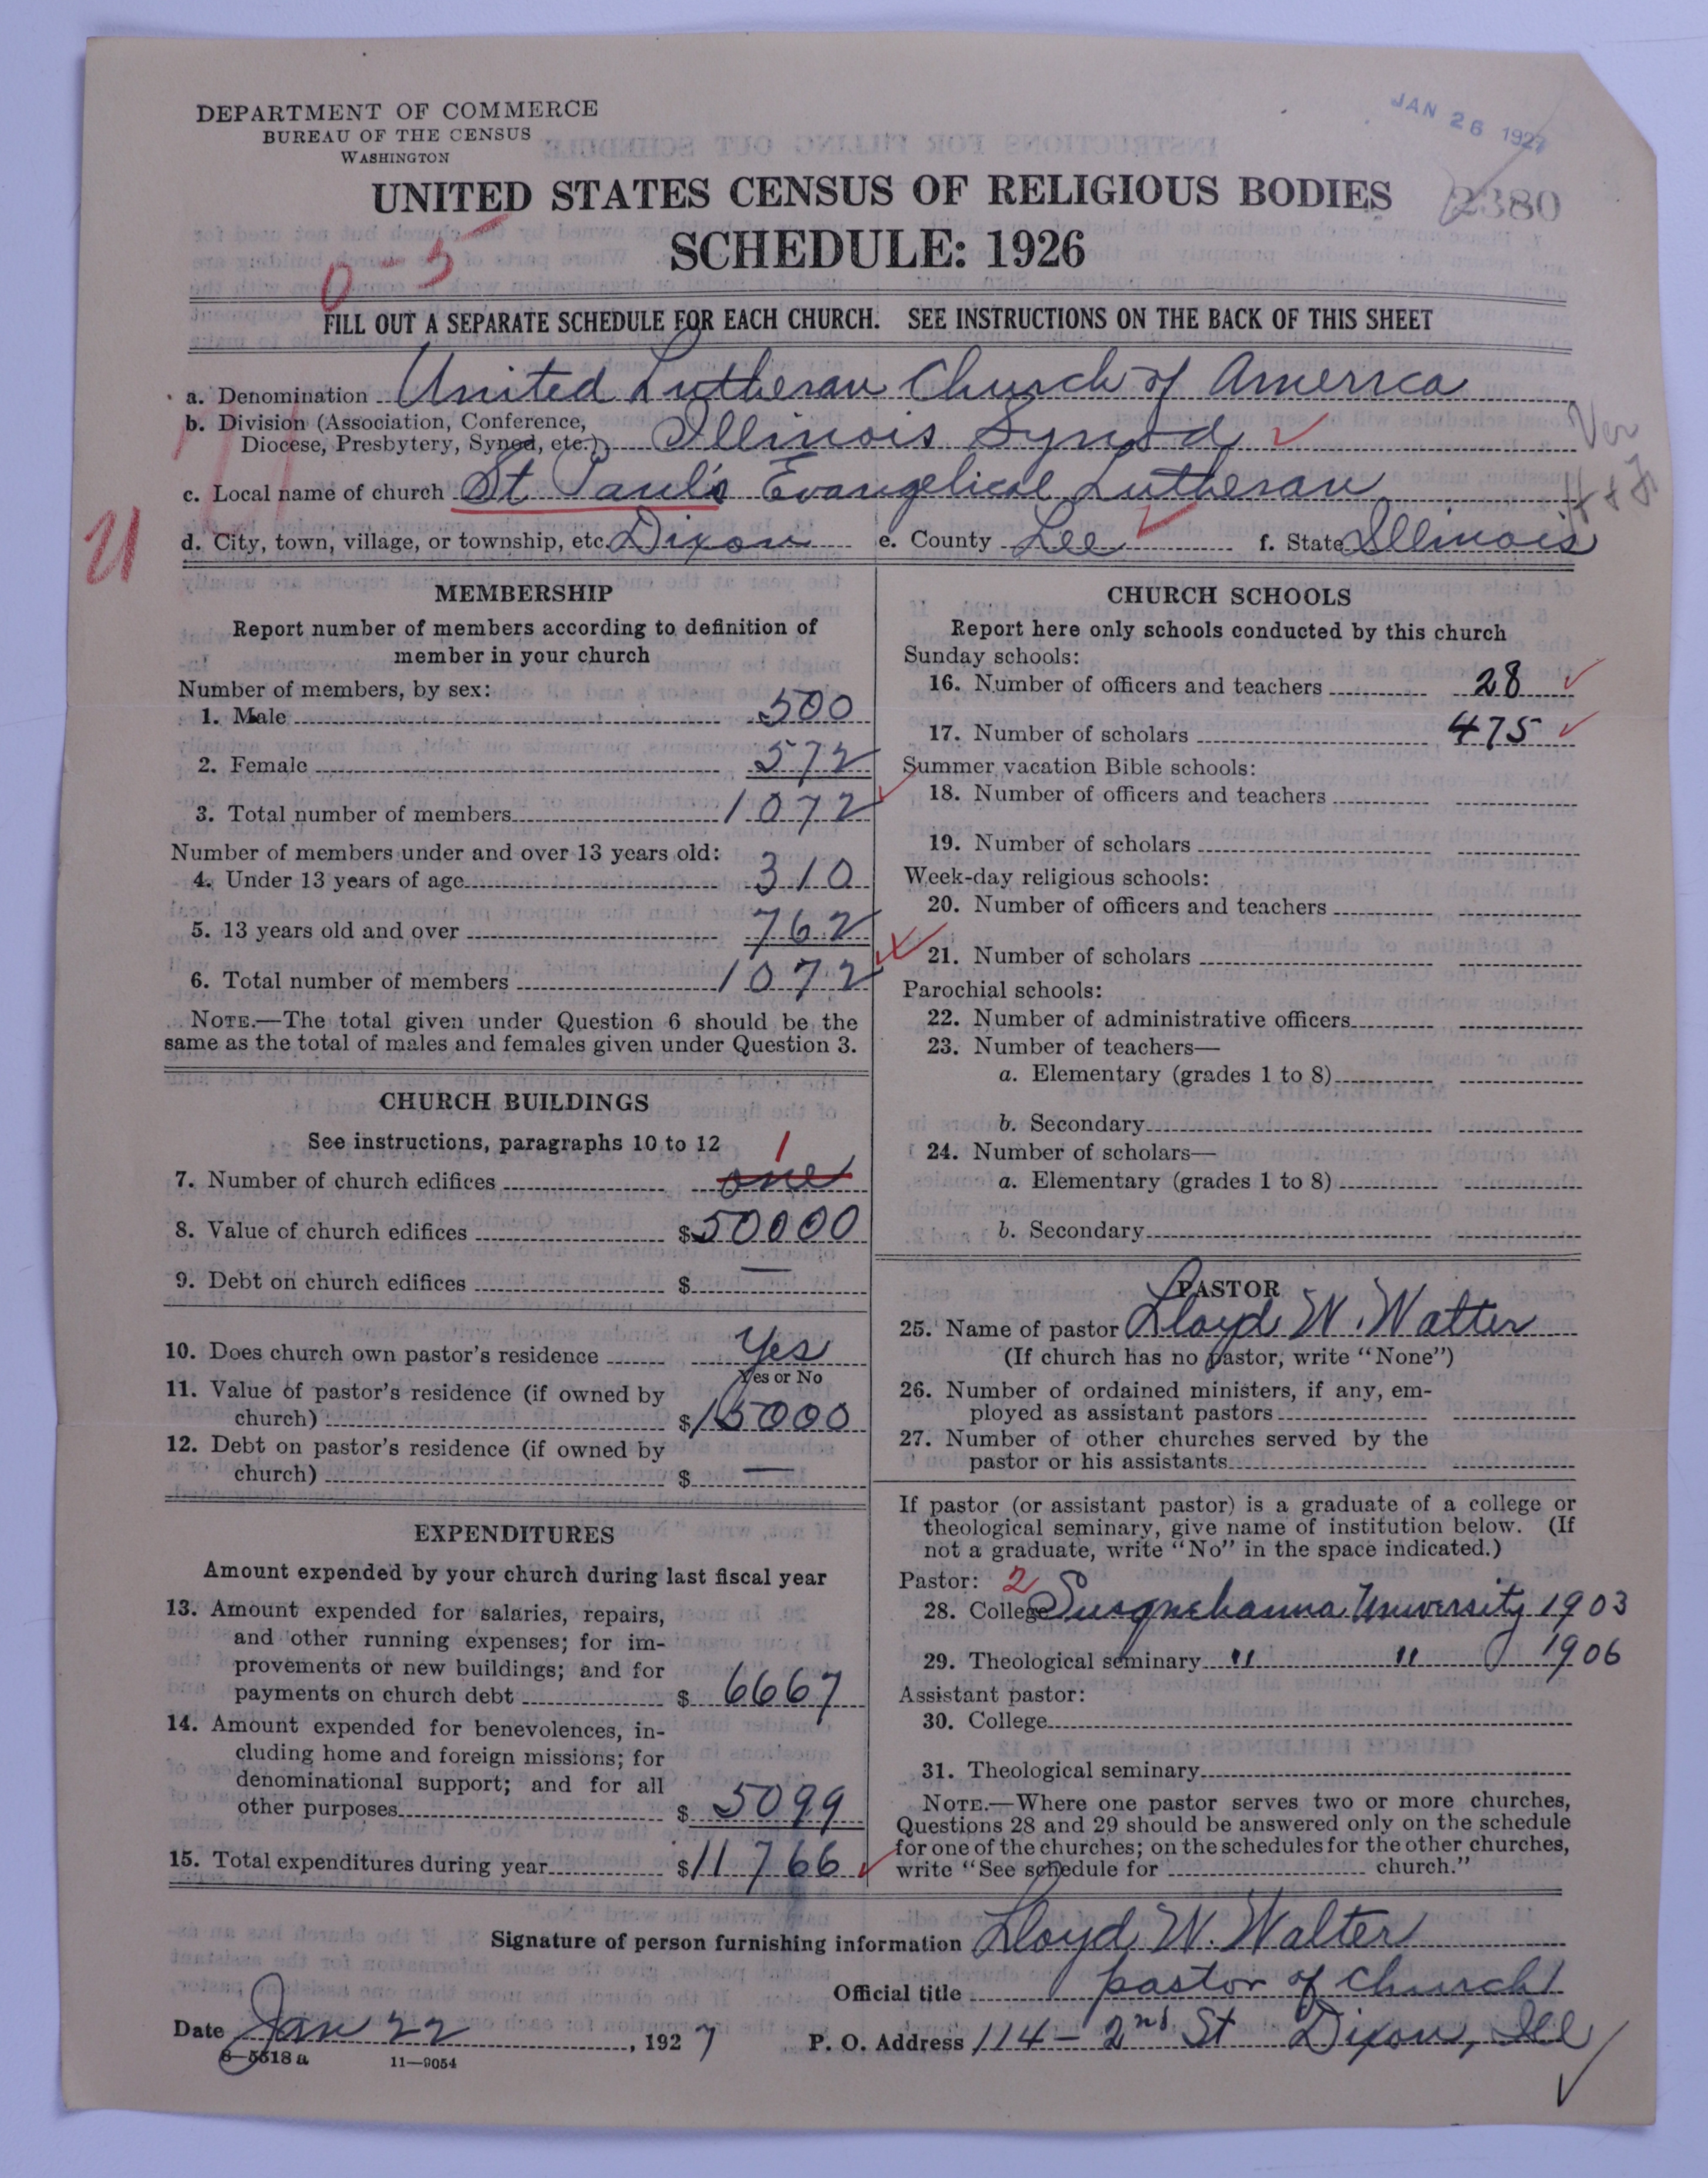 JAN 26 1927
DEPARTMENT OF COMMERCE
BUREAU OF THE CENSUS
WASHINGTON
UNITED STATES CENSUS OF RELIGIOUS BODIES
2380
SCHEDULE: 1926
0-5
FILL OUT A SEPARATE SCHEDULE FOR EACH CHURCH. SEE INSTRUCTIONS ON THE BACK OF THIS SHEET
a. Denomination United Lutheran Church of America
b. Division (Association, Conference,
Diocese, Presbytery, Synod, etc.) Illinois Synod
c. Local name of church St Paul's Evangelical Lutheran
d. City, town, village, or township, etc. Dixon e. County Lee f. State Illinois
MEMBERSHIP
Report number of members according to definition of
member in your church
Number of members, by sex:
1. Male 500
2. Female 572
3. Total number of members 1072
Number of members under and over 13 years old:
4. Under 13 years of age 310
5. 13 years old and over 762
6. Total number of members 1072
NOTE.—The total given under Question 6 should be the
same as the total of males and females given under Question 3.
CHURCH BUILDINGS
See instructions, paragraphs 10 to 12
1
7. Number of church edifices one
8. Value of church edifices $50000
9. Debt on church edifices $ —
10. Does church own pastor's residence Yes
Yes or No
11. Value of pastor's residence (if owned by
church) $15000
12. Debt on pastor's residence (if owned by
church) $ —
EXPENDITURES
Amount expended by your church during last fiscal year
13. Amount expended for salaries, repairs,
and other running expenses; for im-
provements or new buildings; and for
payments on church debt $ 6667
14. Amount expended for benevolences, in-
cluding home and foreign missions; for
denominational support; and for all
other purposes $ 5099
15. Total expenditures during year $11766
CHURCH SCHOOLS
Report here only schools conducted by this church
Sunday schools:
16. Number of officers and teachers 28
17. Number of scholars 475
Summer vacation Bible schools:
18. Number of officers and teachers
19. Number of scholars
Week-day religious schools:
20. Number of officers and teachers
21. Number of scholars
Parochial schools:
22. Number of administrative officers
23. Number of teachers—
a. Elementary (grades 1 to 8)
b. Secondary
24. Number of scholars—
a. Elementary (grades 1 to 8)
b. Secondary
PASTOR
25. Name of pastor Lloyd W. Walter
(If church has no pastor, write "None")
26. Number of ordained ministers, if any, em-
ployed as assistant pastors
27. Number of other churches served by the
pastor or his assistants
If pastor (or assistant pastor) is a graduate of a college or
theological seminary, give name of institution below. (If
not a graduate, write "No" in the space indicated.)
Pastor: 2
28. College Susquehanna University 1903
29. Theological seminary " " 1906
Assistant pastor:
30. College
31. Theological seminary
NOTE.—Where one pastor serves two or more churches,
Questions 28 and 29 should be answered only on the schedule
for one of the churches; on the schedules for the other churches,
write "See schedule for church."
Signature of person furnishing information Lloyd W. Walter
Official title pastor of church
Date Jan 22, 1927 P. O. Address 114 - 2nd St Dixon, Ill
8-5518 a 11-9054